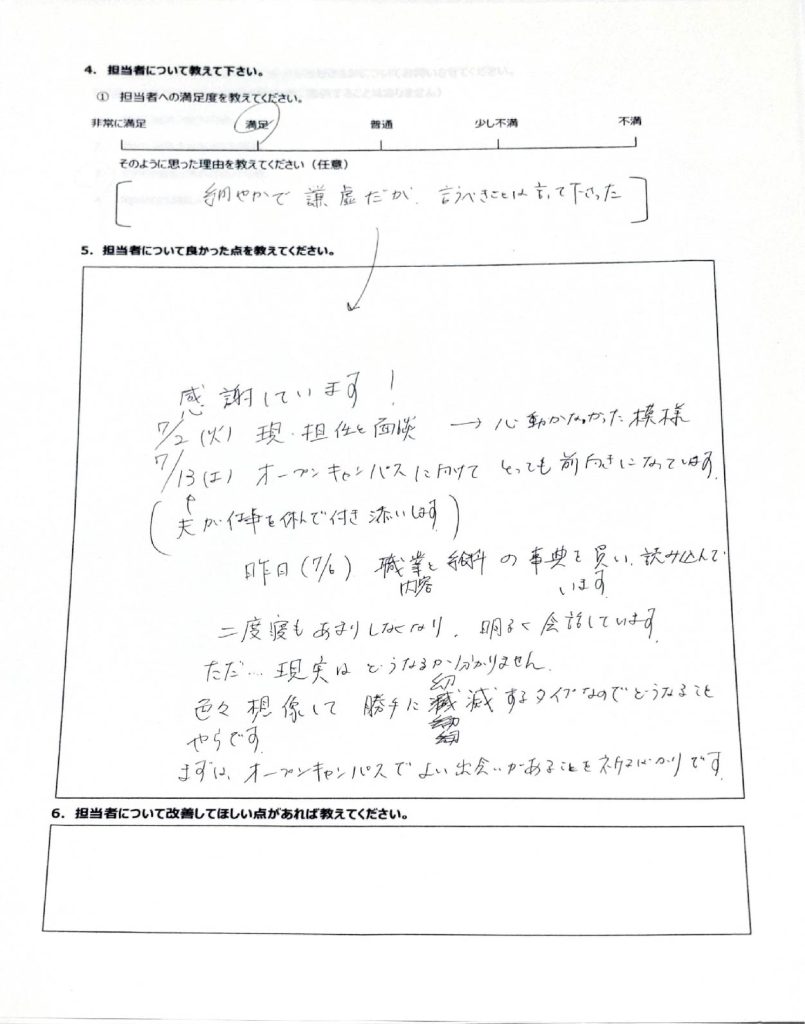 4. 担当者について教えて下さい。
① 担当者への満足度を教えてください。
非常に満足 満足 普通 少し不満 不満
そのように思った理由を教えてください（任意）
細やかで謙虚だが、言うべきことは言って下さった
5. 担当者について良かった点を教えてください。
感謝しています！
7/2（火） 現・担任と面談 → 心動かなかった模様
7/13（土） オープンキャンパスに向けて とっても前向きになっています。
（夫が仕事を休んで付き添いします）
昨日（7/6） 職業と給料の事典を買い、読み込んで
内容 います
二度寝もあまりしなくなり、明るく会話しています
ただ… 現実はどうなるか分かりません。
幻
色々想像して 勝手に 滅するタイプなのでどうなること
やらです。
まずは、オープンキャンパスでよい出会いがあることをばかりです。
6. 担当者について改善してほしい点があれば教えてください。